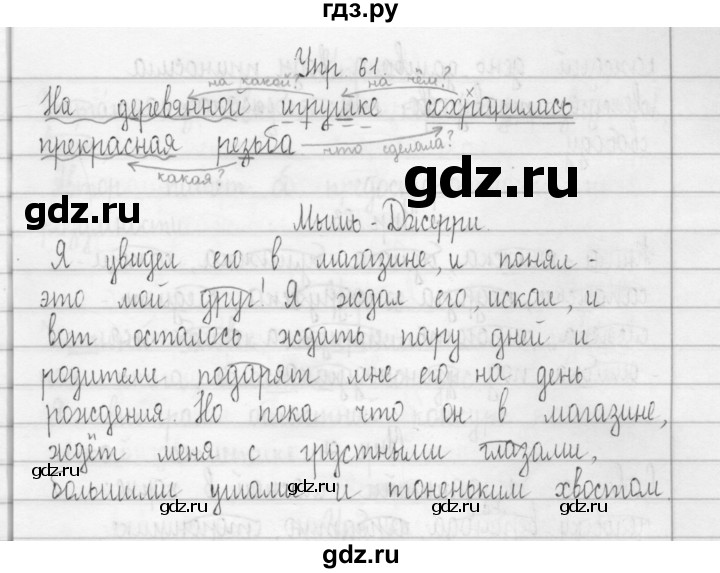 гдз.ру
Упр 61.
на какой? на чём?
На деревянной игрушке сохранилась
прекрасная резьба
что сделала?
какая?
gdz.ru
gdz.ru
Мышь - Джерри.
Я увидел его в магазине, и понял -
это мой друг! Я ждал его, искал, и
вот осталось ждать пару дней и
родители подарят мне его на день
рождения. Но пока что он в магазине,
ждёт меня с грустными глазами,
gdz.ru
gdz.ru
большими ушами и тоненьким хвостом.
gdz.ru